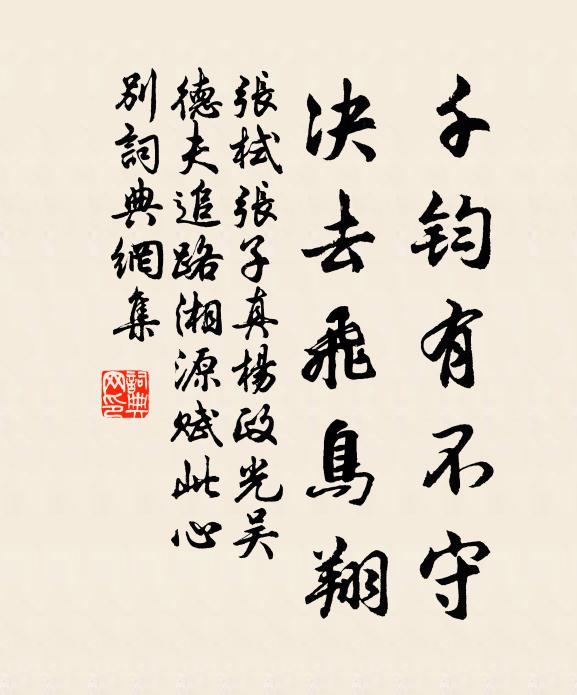 千鈞有不守
決去飛鳥翔
張栻張子真楊政光吴
德夫追路湘源賦此心
別詞典網集
詞典網印